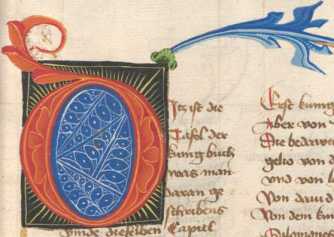 Diz ist die
Tafel der
kunig buch
was man
daran ge
schribens
vinde dieselben Capitl
Erst kunig
Aber von
Die bedarvn
gelio von d
vnd von l
Von dauid
Von dem kun
Salomones